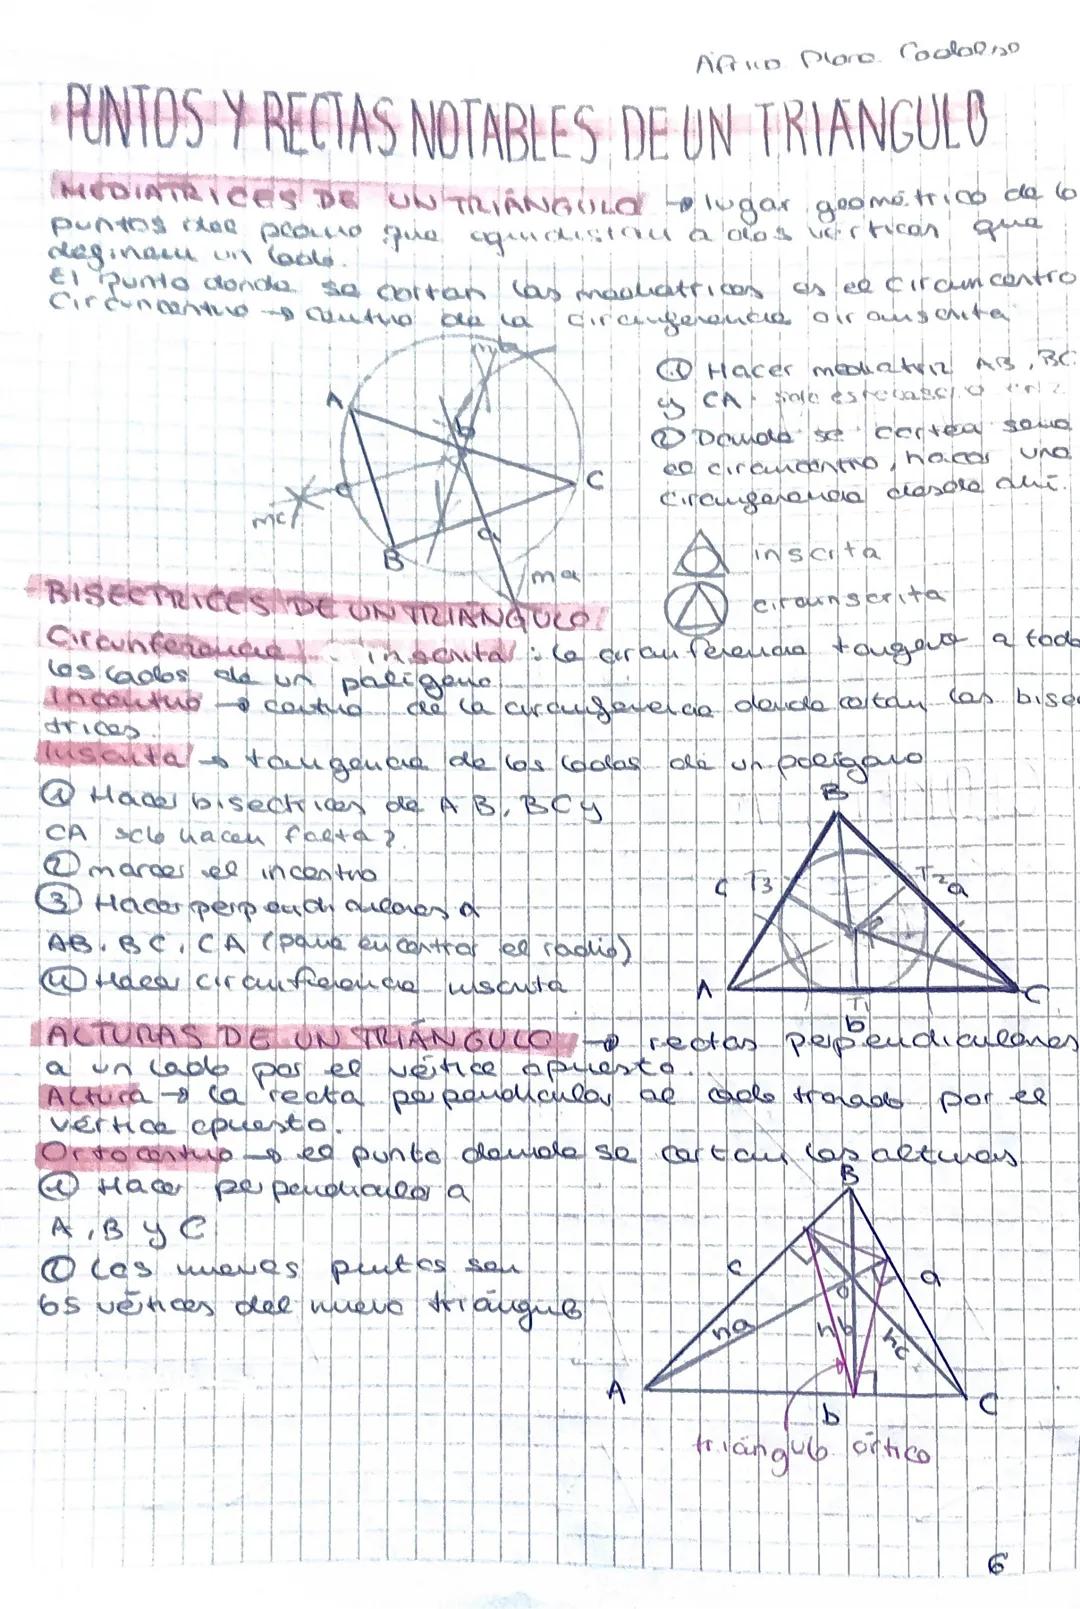 PUNTOS Y RECTAS NOTABLES DE UN TRIÁNGULO
MEDIATRICES DE UN TRIÁNGULO → lugar geométrico de lo
puntos del plano que equidistan a dos vértices que
definen un lado.
El punto donde se cortan las mediatrices es el circuncentro
Circuncentro → centro de la circunferencia circunscrita
① Hacer mediatriz AB, BC
y CA
② Donde se cortea sera
eo circuncentro, haces una
circunferencia desde ahí.
mb
A
b
C
c
mc
a
B
ma
inscrita
circunscrita
BISECTRICES DE UN TRIÁNGULO
Circunferencia inscrita: la circunferencia tangent a todo
los lados de un polígono
Incentro → centro de la circunferencia donde cortan las bisec
trices.
Inscrita → tangencia de los lados de un polígono
① Hacer bisectrices de AB, BC y
CA solo hacen falta 2.
② marcar el incentro
③ Hacer perpendiculares a
AB, BC, CA (para encontrar el radio)
④ Hacer circunferencia inscrita
B
c T3
T2 a
A
T1
C
b
ALTURAS DE UN TRIÁNGULO → rectas perpendiculares
a un lado por el vértice opuesto.
Altura → la recta perpendicular al lado trazado por el
vértice opuesto.
Ortocentro → el punto donde se cortan las alturas
① Hacer perpendicular a
A, B y C
② Los nuevos puntos son
los vértices del nuevo triángulo
B
c
a
O
ha
hb
hc
A
b
C
triángulo órtico
6